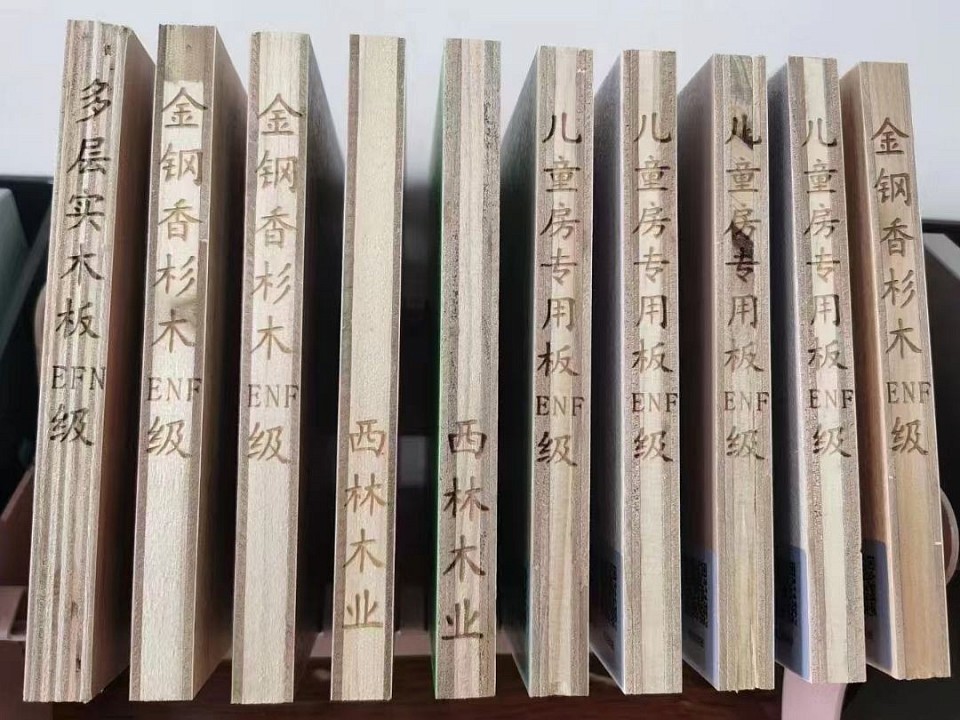 多层实木板EFN级
金钢香杉木ENF级
金钢香杉木ENF级
西林木业
西林木业
儿童房专用板ENF级
儿童房专用板ENF级
儿童房专用板ENF级
儿童房专用板ENF级
金钢香杉木ENF级